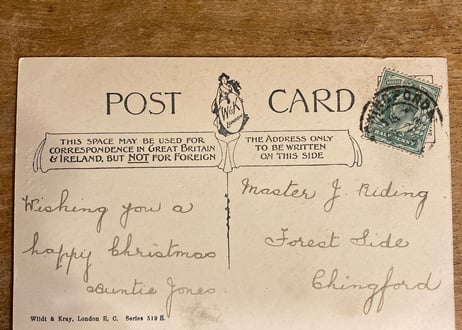 POST CARD
THIS SPACE MAY BE USED FOR
CORRESPONDENCE IN GREAT BRITAIN
& IRELAND, BUT NOT FOR FOREIGN
THE ADDRESS ONLY
TO BE WRITTEN
ON THIS SIDE
Wishing you a
happy Christmas
Auntie Jones.
Master J. Riding
Forest Side
Chingford
Wildt & Kray, London E. C. Series 519 E.
HALFPENNY